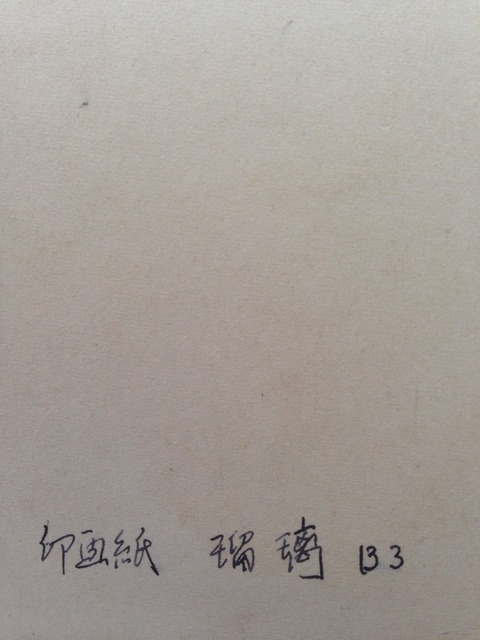 印画紙 瑠璃 B3